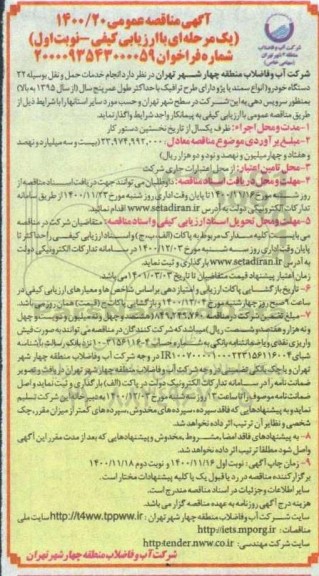 آگهی مناقصه عمومی ۱۴۰۰/۲۰
(یک مرحله ای با ارزیابی کیفی -نوبت اول)
شماره فراخوان ۲۰۰۰۰۹۳۵۴۳۰۰۰۰۵۹
شرکت آب و فاضلاب
منطقه ۴ شهر تهران
(سهامی خاص)
شرکت آب وفاضلاب منطقه چهار شهر تهران در نظر دارد انجام خدمات حمل و نقل بوسیله ۲۲
دستگاه خودرو (انواع سمند یا پژو دارای طرح ترافیک با حداکثر طول عمر پنج سال (از سال ۱۳۹۵ به بالا)
بمنظور سرویس دهی به این شرکت در سطح شهر تهران و حسب مورد سایر استانها را با شرایط ذیل از
طریق مناقصه عمومی با ارزیابی کیفی به پیمانکار واجد شرایط واگذار نماید.
۱-مدت و محل اجراء: ظرف یکسال از تاریخ نخستین دستور کار
۲-مبلغ برآوردی موضوع مناقصه معادل ۲۳,۹۷۴,۹۹۲,۰۰۰ (بیست و سه میلیارد و نهصد
و هفتاد و چهار میلیون و نهصد و نود و دو هزار ریال)
۳- محل تامین اعتبار: از محل اعتبارات جاری شرکت
۴-مهلت و محل دریافت اسناد مناقصه: داوطلبان می توانند جهت دریافت اسناد مناقصه از
روز شنبه مورخ ۱۴۰۰/۱۱/۱۶ تا پایان وقت اداری روز شنبه مورخ ۱۴۰۰/۱۱/۲۳ از طریق سامانه
تدارکات الکترونیکی دولت به آدرس www.setadiran.ir اقدام نمائید.
۵-مهلت و محل تحویل اسناد ارزیابی کیفی و اسناد مناقصه: متقاضیان شرکت در مناقصه
می بایست کلیه مدارک مربوط به پاکات (الف،ب،ج) و اسناد ارزیابی کیفی را حداکثر تا
پایان وقت اداری روز سه شنبه مورخ ۱۴۰۰/۱۲/۰۳ در سامانه تدارکات الکترونیکی دولت
به آدرس www.setadiran.ir بارگذاری و ثبت نماید.
زمان اعتبار پیشنهاد قیمت متقاضیان تا تاریخ ۱۴۰۱/۰۳/۰۳ می باشد.
۶-تاریخ بازگشایی پاکات ارزیابی و امتیاز دهی براساس شاخص ها و معیارهای ارزیابی کیفی در
ساعت ۹ صبح روز چهارشنبه مورخ ۱۴۰۰/۱۲/۰۴ و بازگشایی پاکات ج (قیمت) همان روز می باشد.
۷-مبلغ تضمین شرکت در مناقصه
شبای در وجه شرکت آب و فاضلاب منطقه چهار شهر
تهران و یا چک بانکی تضمینی در وجه شرکت آب و فاضلاب منطقه چهار شهر تهران دریافت و تصویر
ضمانت نامه را در سامانه تدارکات الکترونیک دولت در پاکت (الف) بارگذاری و ثبت نماید و اصل
ضمانت نامه موصوف را تا ساعت روز سه شنبه مورخ ۱۴۰۰/۱۲/۰۳ به دبیرخانه این شرکت تسلیم
نماید و به پیشنهادهایی که فاقد سپرده، سپرده های مخدوش، سپرده های کمتر از میزان مقرر، چک
شخصی و نظایر آن ترتیب اثر داده نخواهد شد.
۸- به پیشنهادهای فاقد امضا، مشروط، مخدوش و پیشنهاداتی که بعد از مدت مقرر این آگهی
واصل شود مطلقا ترتیب اثر داده نخواهد شد.
۹- زمان چاپ آگهی: نوبت اول ۱۴۰۰/۱۱/۱۶ و نوبت دوم ۱۴۰۰/۱۱/۱۸
برگزار کننده مناقصه در رد یا قبول یک یا کلیه پیشنهادات مختار است.
سایر اطلاعات و جزئیات در اسناد مناقصه مندرج است.
هزینه درج آگهی روزنامه به عهده مناقصه گزار می باشد.
سایت شرکت آب و فاضلاب منطقه چهار شهر تهران: http://t4ww.tppww.ir سایت ملی
مناقصات: http://iets.mporg.ir
سایت شرکت مهندسی: http:tender.nww.co.ir
شرکت آب و فاضلاب منطقه چهار شهر تهران